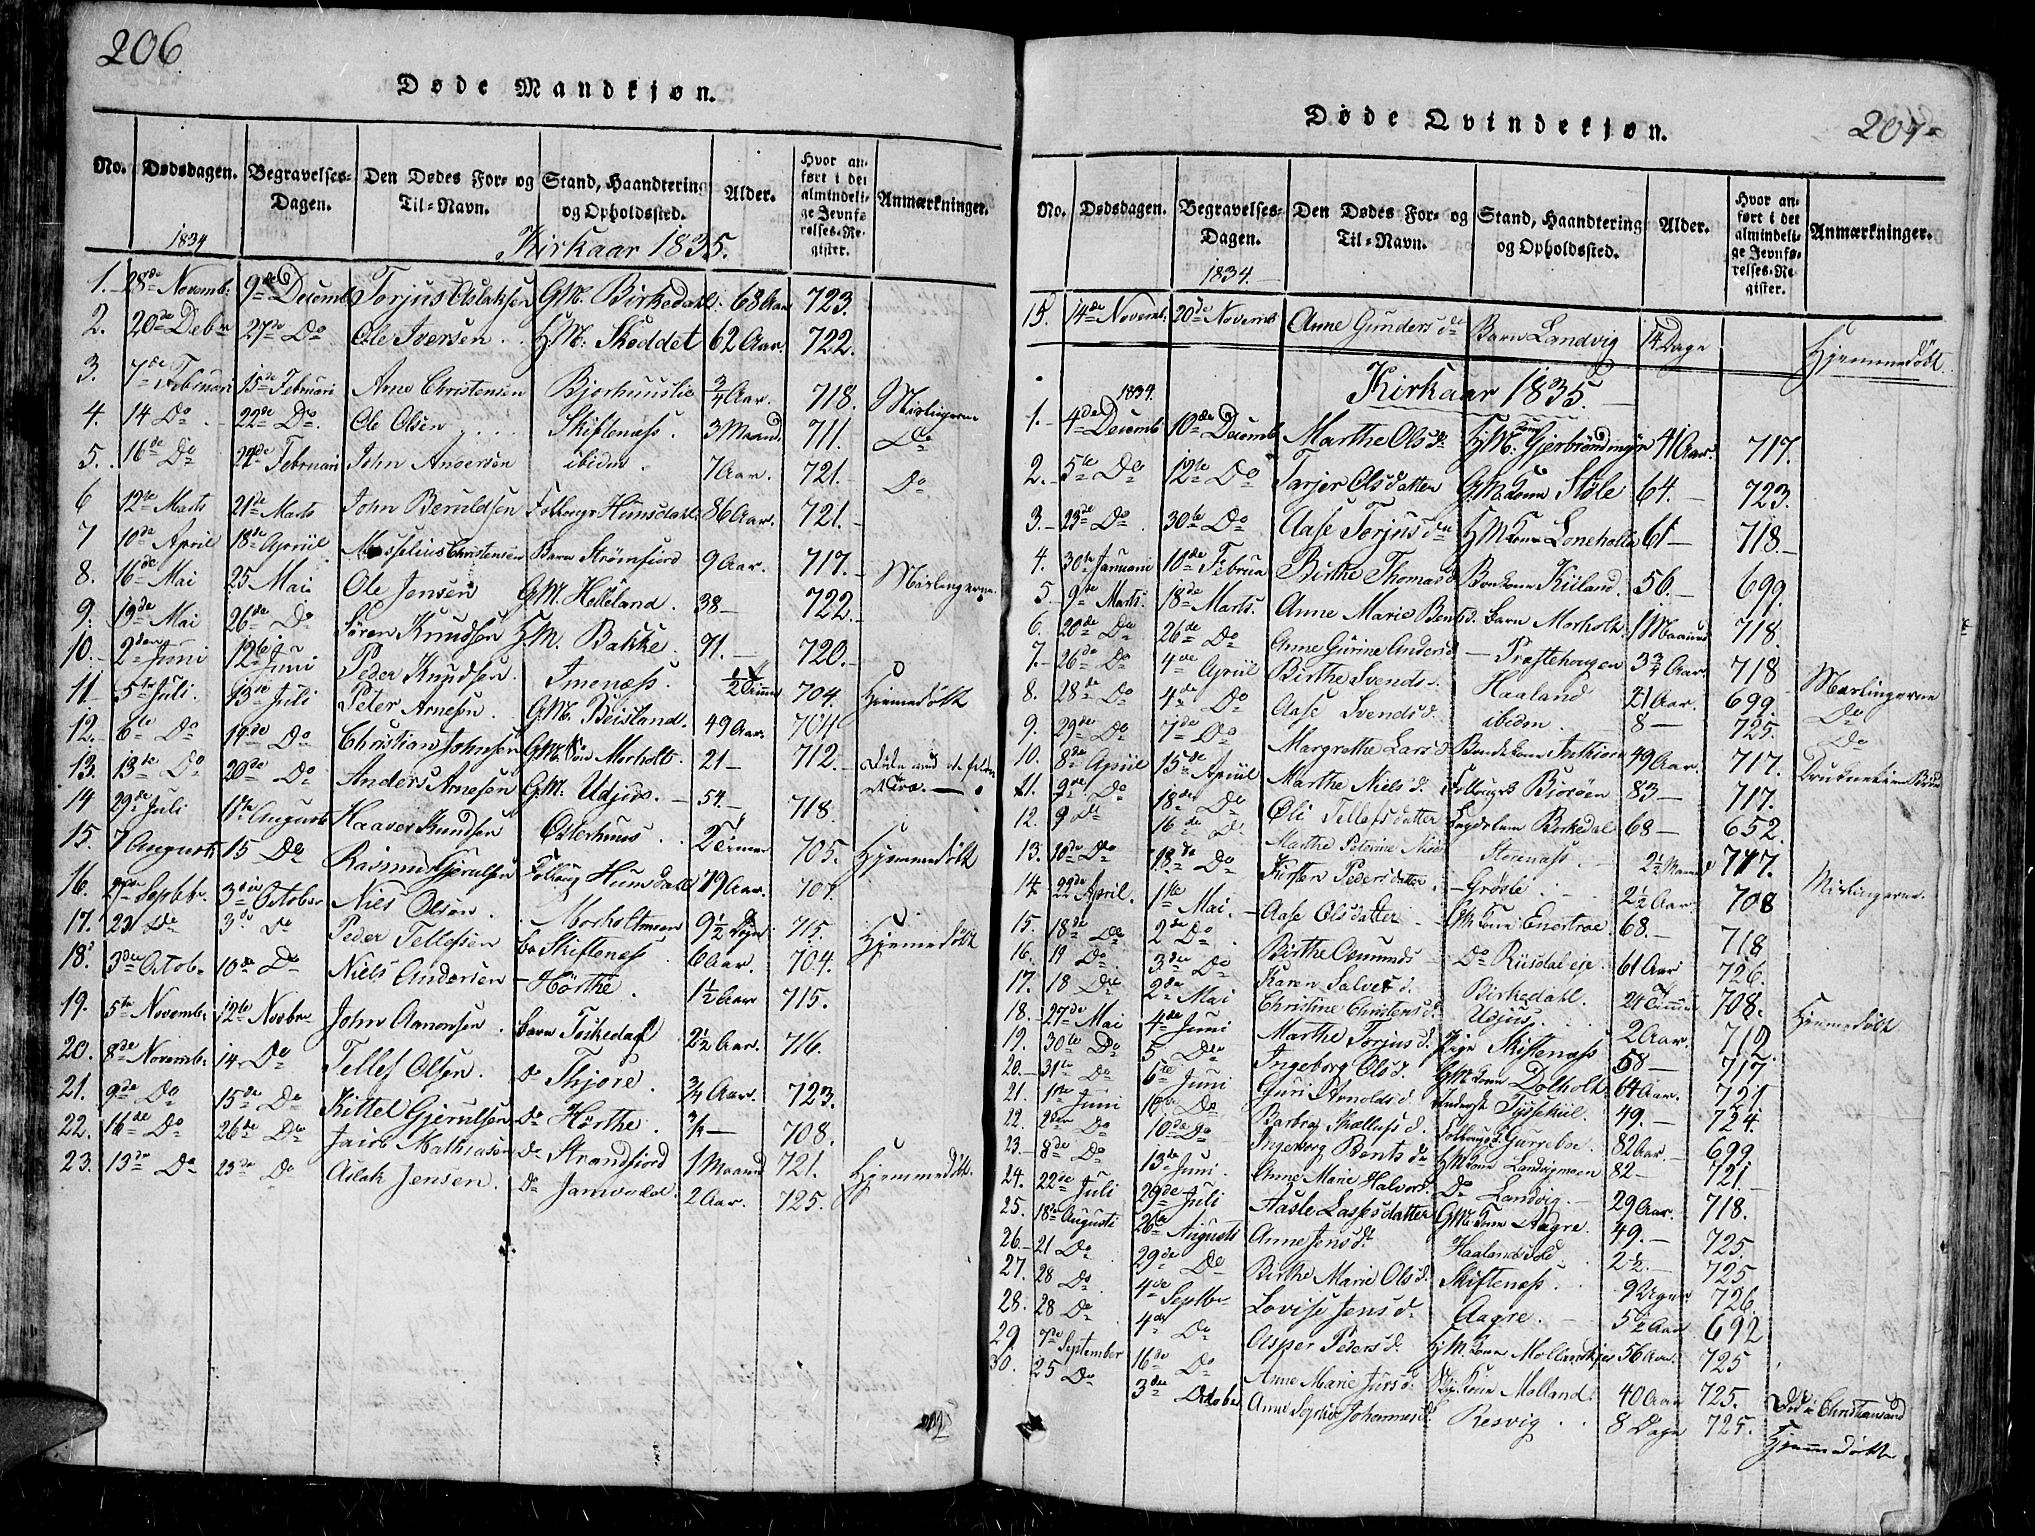 206
Døde Mandkjøn.
No. Dødsdagen. Begravelses-Dagen. Den Dødes For- og Til-Navn. Stand, Haandtering og Opholdssted. Alder. Hvor anført i det almindelige Jevnførelses-Register. Anmærkninger.
1834
Kirkaar 1835.
1. 28de Novemb: 9de Decemb Torjus Aslaksen G.M. Birkedahl. 68 Aar 723.
2. 20de Debr 27de Do Ole Iversen H.M. Skoddet 62 Aar. 722.
3. 7de Februari 15de Februari Arne Christensen Bjorhuuslie 3/4 Aar. 718. Mæslingerne
4. 14 Do 22de Do. Ole Olsen Skiftenæss. 3 Maand. 711. Do
5. 16de Do 24de Februari John Andersen ibidm. 7 Aar. 721. Do
6 12te Marts 21de Marts John Beruldsen Hunsdahl 86 Aar. 721.
7 10de April 18de Apriil Christensen Barn Strømfiord 9 Aar. 717.
8. 16de Mai 25 Mai Ole Jensen G.M. Helleland. 38 — 722. Mæslingerne
9. 19de Mai 26de Do Søren Knudsen H.M. Bakke. 91. — 720.
10. 2den Juni 12te Juni Peder Knudsen. Imenæss. 1/2 704. Hjemmedøbt
11. 5te Juli. 13de Juli Peter Arnesen. G.M. Beisland. 49 Aar. 704
12. 6te Do 14de Do Christian Johnsen G.M. Morholt. 21 — 712.
13. 13de Do 20de Do Anders Arnesen G.M. Udjus. — 54. — 718.
14 29de Juli Augusti Haaver Knudsen Osterhuus. 2 Timer 705. Hjemmedøbt
15. 7 Augusti 15 Do Rasmus Gjerulsen Hunsdall 79 Aar. 707.
16. Septbr. 3die October Niels Olsen. Morholtmoen 9 1/2 715. Hjemmedøbt
17. 23 Do 3de Do Peder Tellefsen Skiftenæss. 6 Aar. 704.
18. 3die Octob. 10de Do Niels Andersen — Hørthe. 1 1/2 Aar 715.
19. 5te Novemb. 12te Novbr John Aanonsen. Barn 2 1/2 Aar. 716.
20. 8de Novemb. 14 Do Tellef Olsen. Do Thjore. 3/4 Aar. 723.
21. 9de Do 15de Do Kittel Gjerulsen Do Hørthe. 3/4 — 708.
22. 16de Do 26de Do Jacob Mathiasen Do Strandfiord 1 Maaned 721. Hjemmedøbt
23. 19de Do 23de Do Aslak Jensen. Do 2 Aar. 725.
207
Døde Qvindekjøn.
No. Dødsdagen. Begravelses-Dagen. Den Dødes For- og Til-Navn. Stand, Haandtering og Opholdssted. Alder. Hvor anført i det almindelige Jevnførelses-Register. Anmærkninger.
1834.
15. 14de Novemb: 20de Novemb Anne Gundersd Barn Landvig 14 Dage Hjemmedøbt
1834.
Kirkaar 1835.
1. 4de Decemb 10de Decemb Marthe Olsd. H.M. Kone 41 Aar. 717.
2. 5te Do 12te Do Tarjer Olsdatter G.M. Kone Støle 64. — 723.
3. 23de Do 30te Do Aase Torjusd H.M. Kone Loneholte 61 — 718
4. 30te Januari 10de Februa Birthe Thomasd Kiiland. 56. — 699.
5. 9de Marts. 18de Marts. Anne Marie Bentsd. Barn Morholt 1 Maaned 718.
6. 20de Do 26de Do Anne Gurine Andersd — 3 3/4 Aar. 718
7. 26de Do 4de Apriil Birthe Svendsd. Haaland 21 Aar. 699. Mæslingerne
8. 28de Do 4de Do Aase Svendsd. ibidm. 8 — 725. Do
9. 29de Do 7de Do Margrethe Larsd 49 Aar. 717. Do
10. 8de Apriil 15de Apriil Marthe Nielsd. 83 — 717.
11. 9de Do 18de Do Oli Tellefsdatter Birkedal 68 — 652.
12. 9 Do 16de Do Marthe Petrine Storenæss. 2 1/2 Maaned 717.
13. 10de Do 18de Do Kirsten Pedersdatter — Grøsle 2 1/2 Aar. 708 Mæslingerne.
14. 22de April. 1ste Mai. — Aase Olsdatter G.M. Kone 68. — 718
15. 18de Do 2de Do Birthe Osmundsd Do Riisdal 61 Aar 726.
16. 19 Do 3die Do Karen Salvesd. Birkedahl. 24 708. Hjemmedøbt
17. 18 Do 2de Mai Christine Christensd. Udjus. 2 Aar. 712.
18. 27de Mai 4de Juni Marthe Torjusd. Pige Skiftenæss 58 — 717
19. 30te Do 5 Do Ingeborg Olsd. G.M. Kone Dolholt 64 Aar. 721
20. 31te Do 6te Juni Guri Arnoldsd. 49. — 724
21. 1ste Juni 10de Do Barbra Gurreboe. 82 Aar. 699
22. 2den Do 10de Do Ingeborg Bentsd H.M. Kone Landvigmoen 82 — 721.
23. 8de Do 13de Juni. Anne Marie Halvorsd. Do Landvig. — 29 Aar. 718.
24. 22de Juli 29de Juli Aasle Lassesdatter G.M. Kone Aagre. 49. — 725.
25. 18de Augusti 26te Augusti Anne Jensd. 2 1/2. — 725
26. 21 Do 29de Do Birthe Marie Olsd. Skiftenæss. 9 Uger 726.
27. 28 Do 4de Septbr Lovise Jensd. Aagre. 5 1/2 Aar 692
28. 28 Do 4de Do Asper Pedersd. H.M. Kone 56 Aar. 725
29 7de September 16de Do Anne Marie Kone Molland. 40 Aar 725. Død i Christiansand
30. 25 Do 3die October Anne Johannesd. Resvig 8 Dage 725. Hjemmedøbt